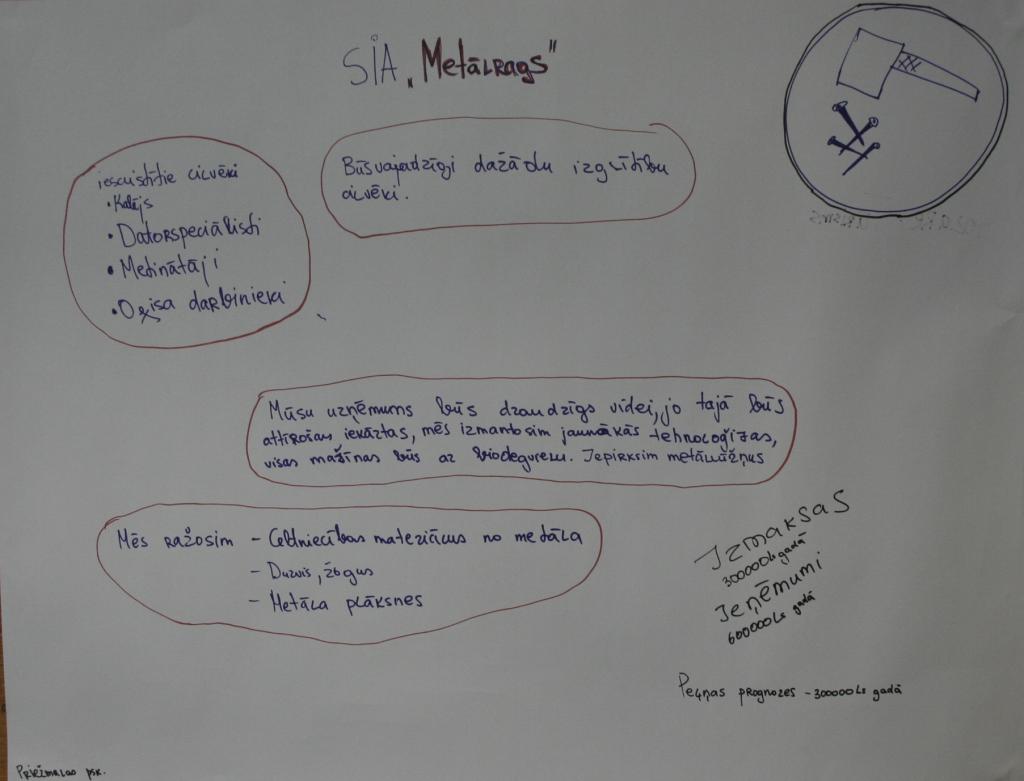 SIA „Metālrags"
Būs vajadzīgi dažādu izglītību
cilvēki.
iesaistītie cilvēki
• Kalējs
• Datorspeciālisti
• Metinātāji
• Ofisa darbinieki
Mūsu uzņēmums būs draudzīgs videi, jo tajā būs
attīrošas iekārtas, mēs izmantosim jaunākās tehnoloģijas,
visas mašīnas būs ar biodegvielu. Iepirksim metāllūžņus
Mēs ražosim - Celtniecības materiālus no metāla
- Durvis, žogus
- Metāla plāksnes
Izmaksas
300000Ls gadā
Ieņēmumi
600000Ls gadā
Peļņas prognozes - 300000Ls gadā
Priežmalas psk.